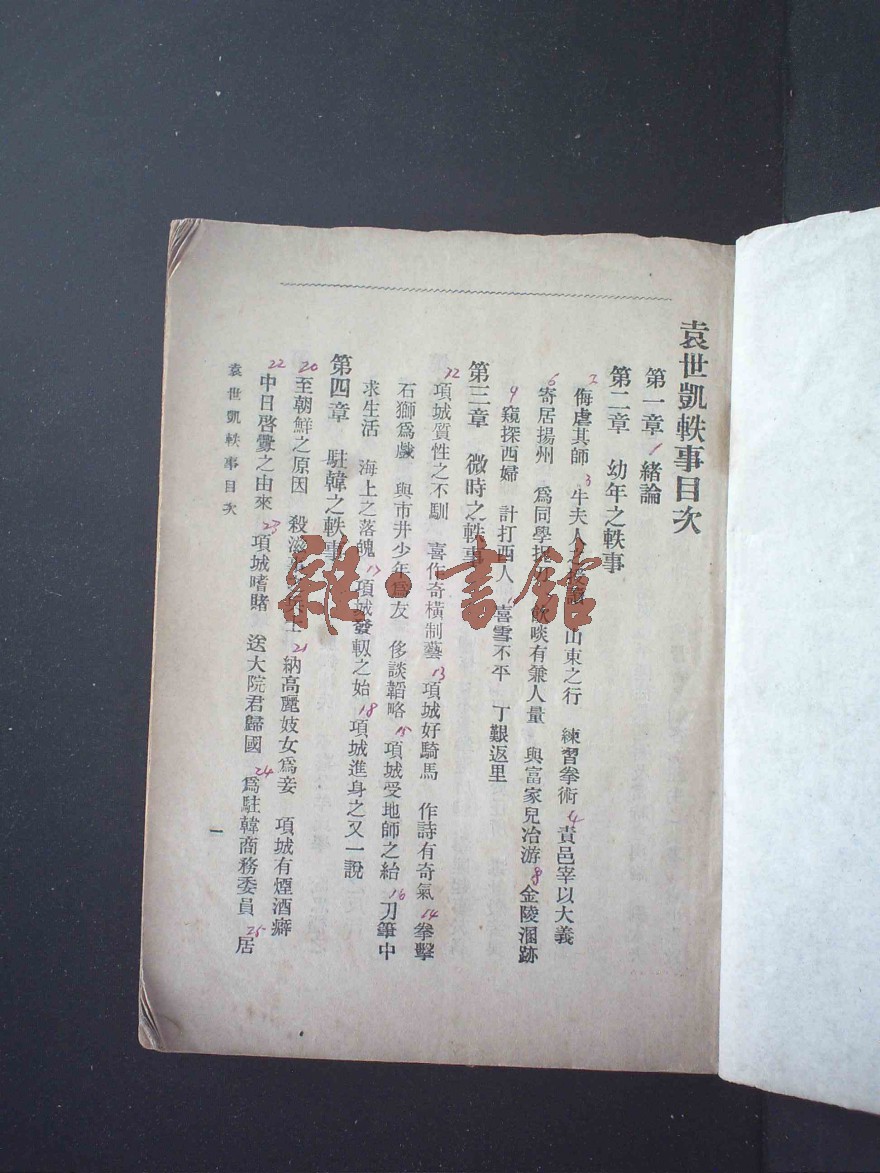 袁世凱軼事目次
第一章 1 緒論
第二章 幼年之軼事
2 侮虐其師 3 牛夫人 山東之行 練習拳術 4 責邑宰以大義
6 寄居揚州 爲同學 飲啖有兼人量 與富家兒冶游 8 金陵溷跡
9 窺探西婦 計打西人 喜雪不平 丁艱返里
第三章 微時之軼事
12 項城質性之不馴 喜作奇橫制藝 13 項城好騎馬 作詩有奇氣 14 拳擊
石獅爲戲 與市井少年爲友 侈談韜略 15 項城受地師之給 16 刀筆中
求生活 海上之落魄 17 項城發軔之始 18 項城進身之又一說
第四章 駐韓之軼事
20 至朝鮮之原因 殺滋 21 納高麗妓女爲妾 項城有煙酒癖
22 中日啓釁之由來 23 項城嗜賭 送大院君歸國 24 爲駐韓商務委員 25 居
袁世凱軼事目次
一
雜·書館